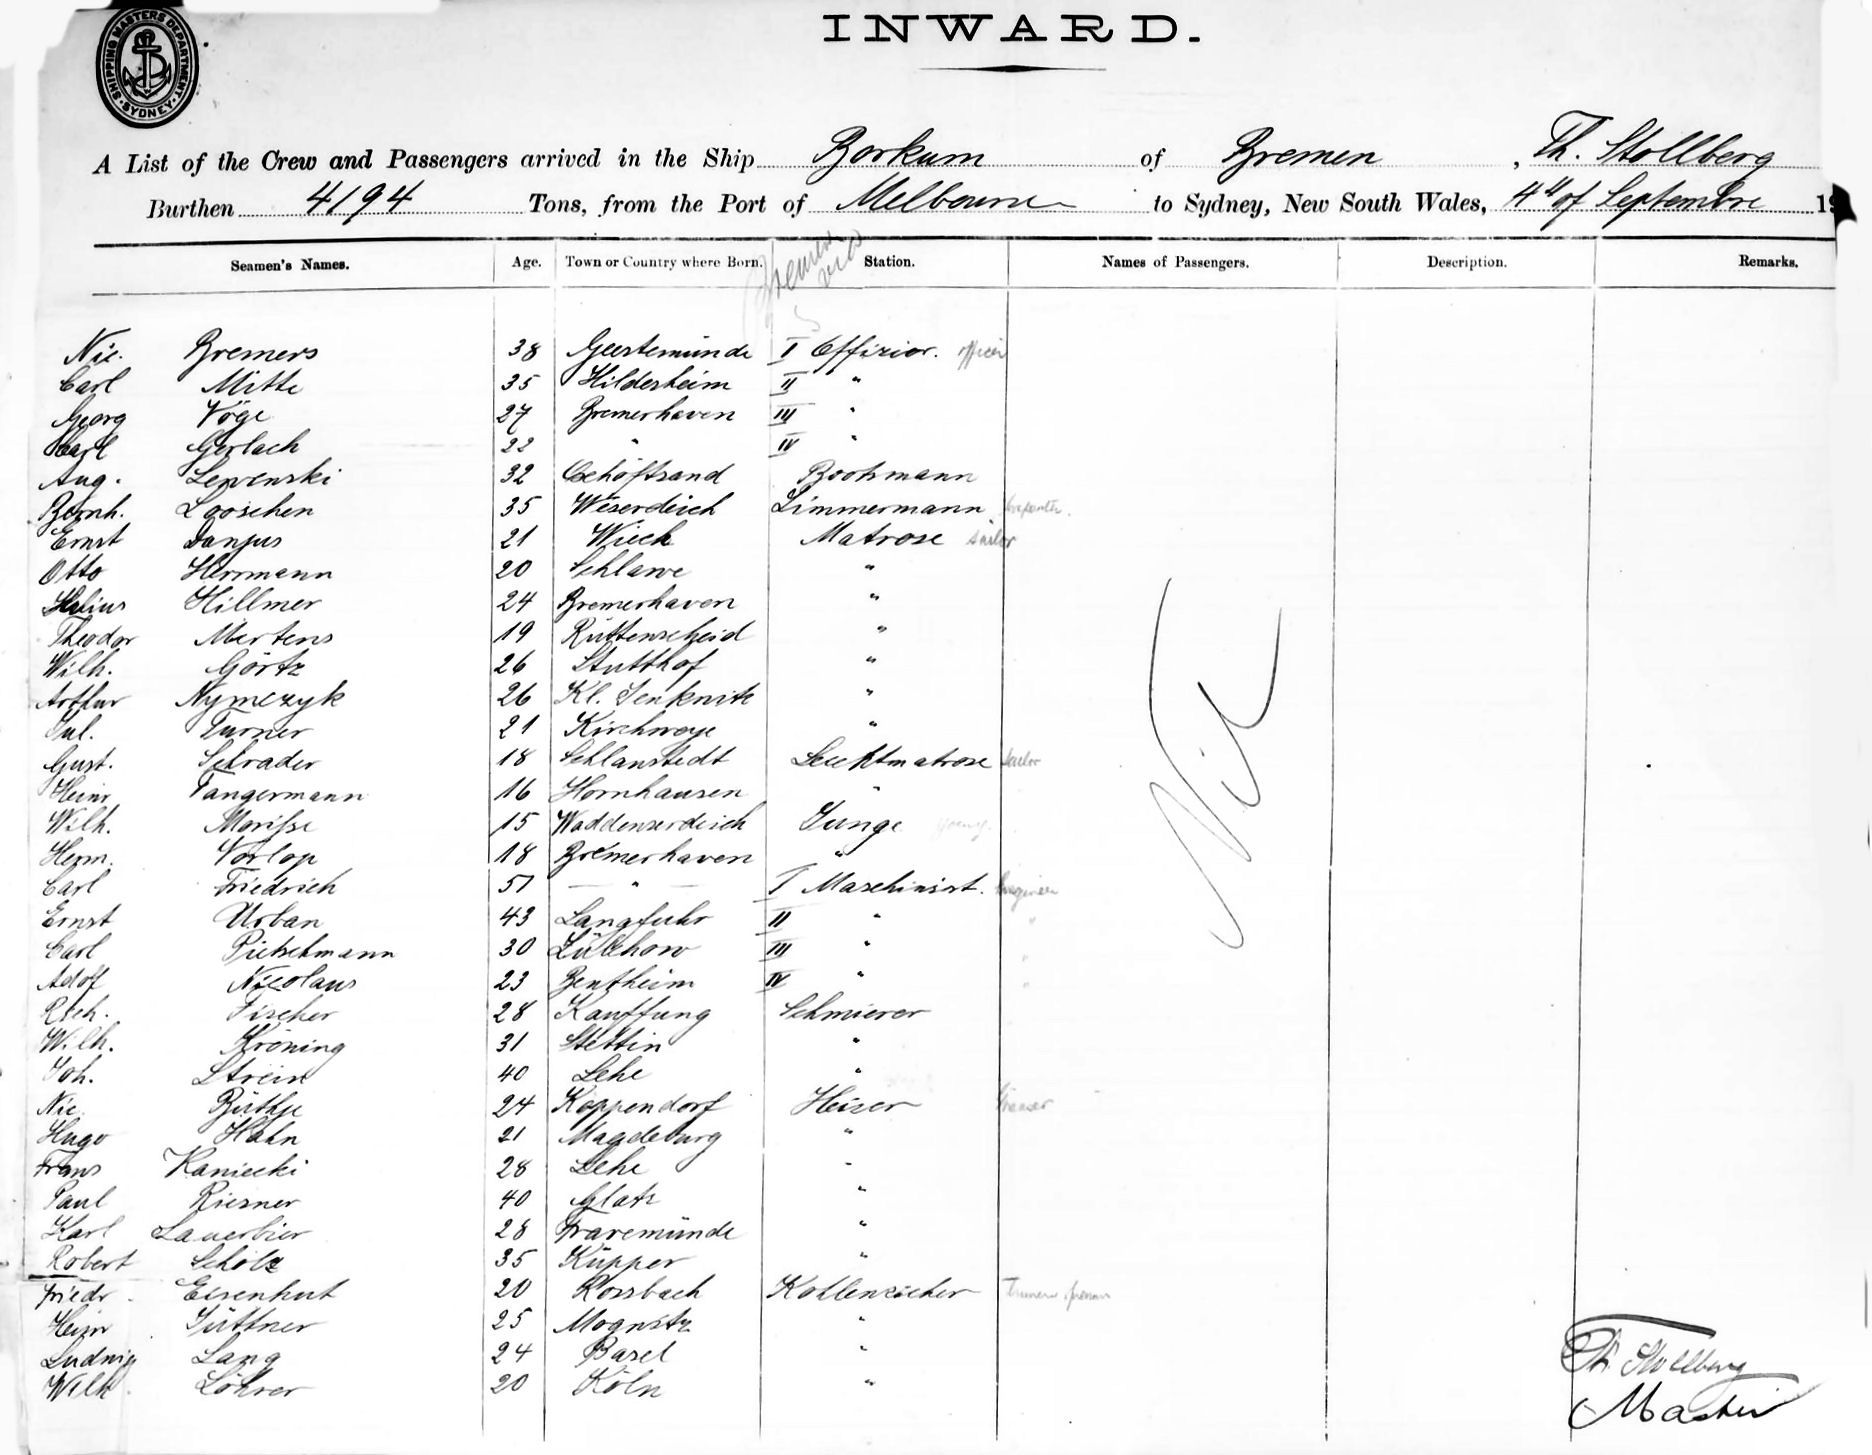 SHIPPING MASTERS DEPARTMENT · SYDNEY ·
INWARD.
A List of the Crew and Passengers arrived in the Ship Borkum of Bremen, Th. Stollberg
Burthen 4194 Tons, from the Port of Melbourne to Sydney, New South Wales, 4th of Septembre 19
Seamen's Names. Age. Town or Country where Born. Station. Names of Passengers. Description. Remarks.
Nic. Bremers 38 Geestemünde I Offizier. officer
Carl Mitte 35 Hildesheim II "
Georg Vöge 27 Bremerhaven III "
Carl Gerlach 22 " IV "
Aug. Lewenski 32 Bootsmann
Bernh. Looschen 35 Weserdeich Zimmermann
Ernst Danjus 21 Wieck Matrose sailor
Otto Herrmann 20 Schlawe "
Julius Hillmer 24 Bremerhaven "
Theodor Mertens 19 Rüttenscheid "
Wilh. Görtz 26 Stutthof "
Arthur Nymczyk 26 Kl. Jenknitz "
Jul. Turner 21 Kirchweye "
Gust. Schrader 18 Schlanstedt Leichtmatrose sailor
Heinr Tangermann 16 Hornhausen "
Wilh. Morisse 15 Waddenserdeich Junge young
Herm. Vorlop 18 Bremerhaven "
Carl Friedrich 51 " I Maschinist.
Ernst Urban 43 Langfuhr II " "
Carl Pietschmann 30 Lüchow III " "
Adolf Nicolaus 23 Bentheim IV " "
Rich. Fischer 28 Kauffung Schmierer
Wilh. Kröning 31 Stettin "
Joh. Strein 40 Lehe "
Nic. Büthje 24 Koppendorf Heizer
Hugo Hahn 21 Magdeburg "
Frans Kaniecki 28 Lehe "
Paul Riesner 40 Glatz "
Karl Lauerbier 28 Travemünde "
Robert Scholz 35 Küpper "
Friedr. Eisenhut 20 Rossbach Kohlenzieher
Heinr Jüttner 25 "
Ludwig Lang 24 Basel "
Wilh. Löhrer 20 Köln "
Nil
Th. Stollberg
Master